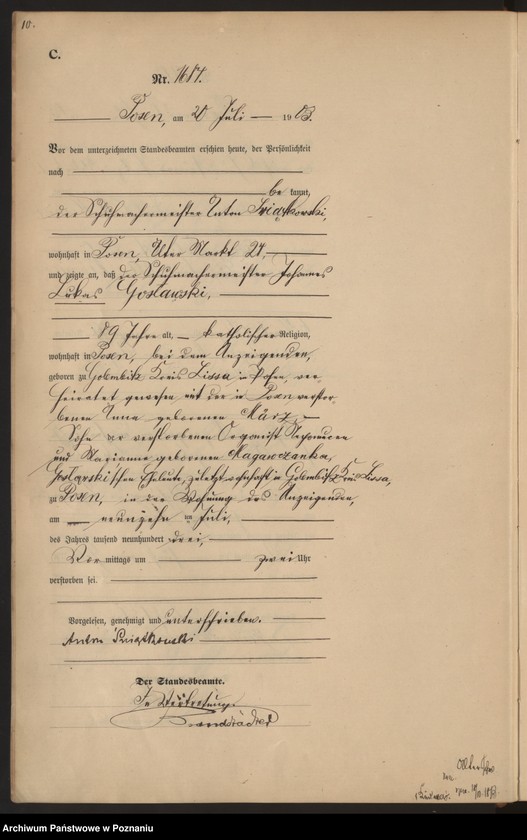 10.
C.
Nr. 1617.
Posen, am 20 Juli 1903.
Vor dem unterzeichneten Standesbeamten erschien heute, der Persönlichkeit
nach
be kannt,
der Schuhmachermeister Anton Swiątkowski,
wohnhaft in Posen, Alter Markt 27,
und zeigte an, daß der Schuhmachermeister Johannes
Lukas Goslawski,
89 Jahre alt, katholischer Religion,
wohnhaft in Posen, bei dem Anzeigenden,
geboren zu Golembitz Kreis Lissa in Posen, ver-
heiratet gewesen mit der in Posen verstor-
benen Anna geborenen März,
Sohn der verstorbenen Organist Nepomucen
und Marianne geborenen Magawczanka,
Goslawski'schen Eheleute, zuletzt wohnhaft in Golembitz Kreis Lissa,
zu Posen, in der Wohnung des Anzeigenden,
am neunzehn ten Juli,
des Jahres tausend neunhundert drei,
Vor mittags um zwei Uhr
verstorben sei.
Vorgelesen, genehmigt und unterschrieben.
Anton Swiątkowski
Der Standesbeamte.
In Vertretung.
Archiwum Państwowe w Poznaniu